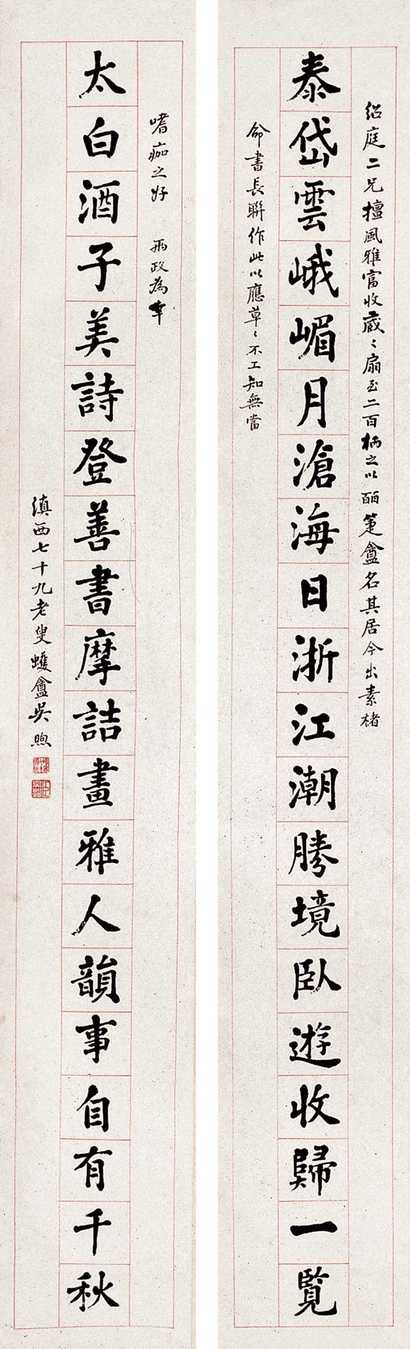 紹庭二兄擅風雅富收藏〻扇至二百柄之以
名其居今出素楮
泰岱雲峨嵋月滄海日浙江潮勝境臥遊收歸一覽
命書長聯作此以應草〻不工知無當
嗜痂之好 兩政為幸
太白酒子美詩登善書摩詰畫雅人韻事自有千秋
滇西七十九老叟蠖盦吳煦